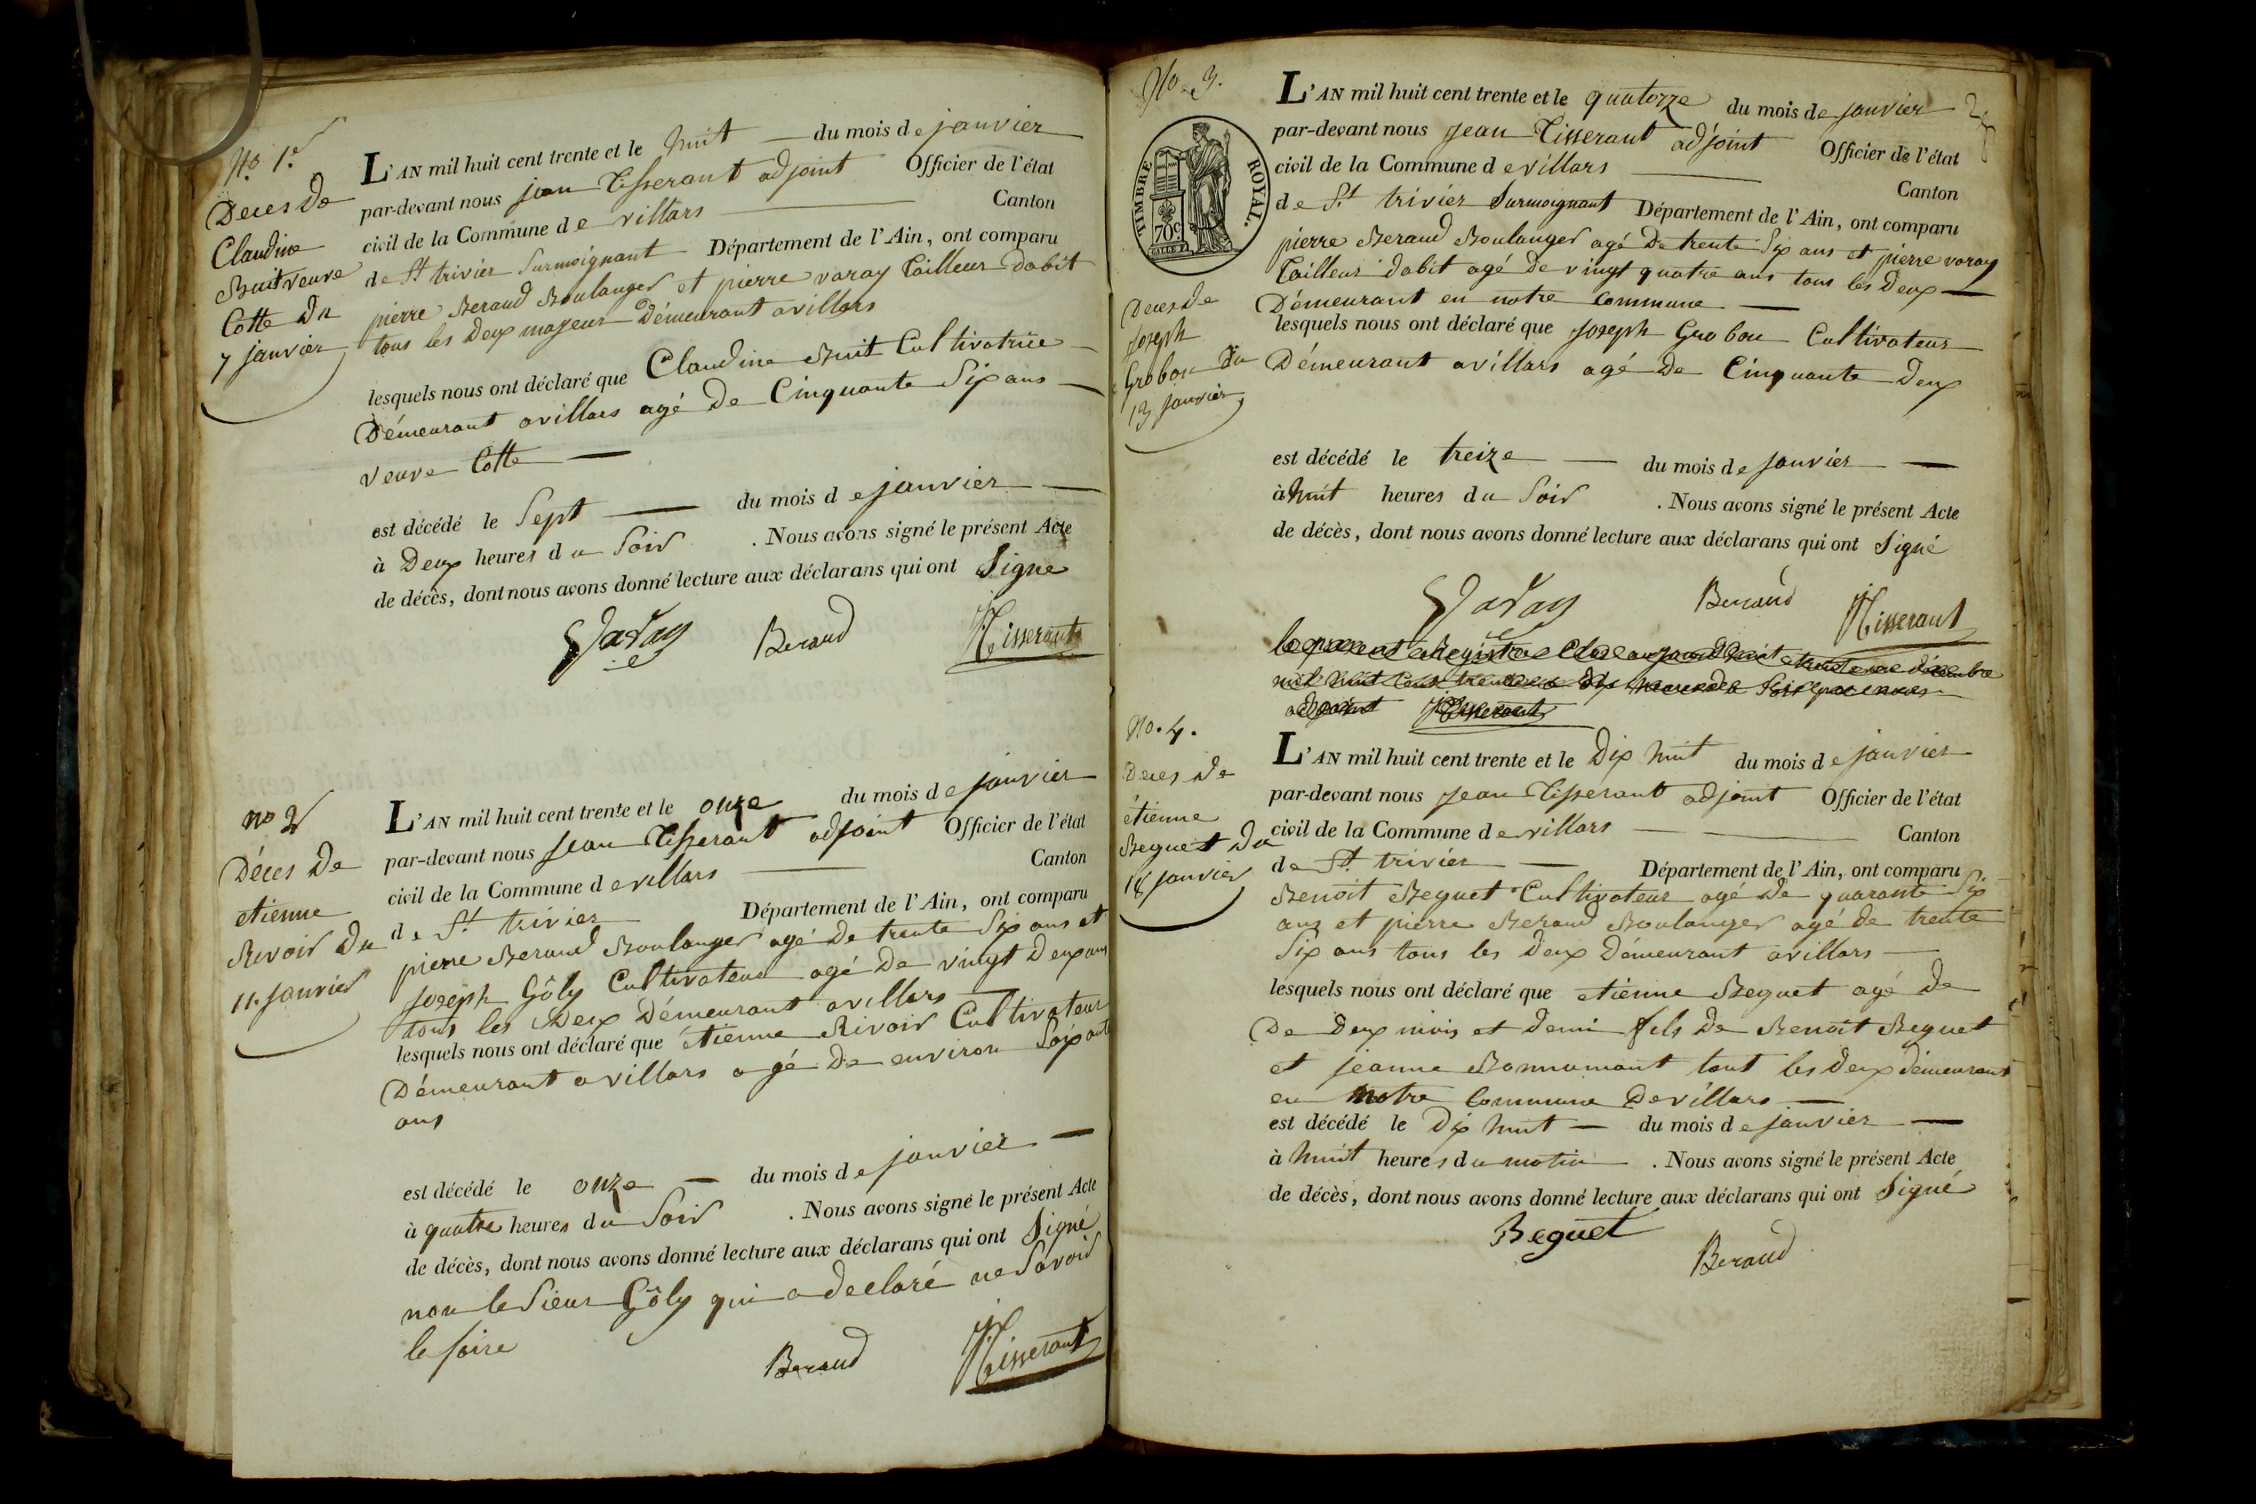 No 1.er
Deces de
Claudine
Buit veuve
Cotte du
7 janvier
L'AN mil huit cent trente et le huit du mois de janvier
par-devant nous jean tisserant adjoint Officier de l'état
civil de la Commune de villars Canton
de St trivier Surmoignant Département de l'Ain, ont comparu
pierre Beraud Boulanger et pierre varay tailleur dabit
tous les deux majeur Démeurant avillars
lesquels nous ont déclaré que Claudine Buit Cultivatrice
Démeurant avillars agé de Cinquante Six ans
veuve Cotte
est décédé le Sept du mois de janvier
à Deux heures du Soir . Nous avons signé le présent Acte
de décès, dont nous avons donné lecture aux déclarans qui ont Signe
Varay Beraud JTisserant
no 2
Déces de
etienne
Rivoir du
11. janvier
L'AN mil huit cent trente et le onze du mois de janvier
par-devant nous jean tisserant adjoint Officier de l'état
civil de la Commune de villars Canton
de St trivier Département de l'Ain, ont comparu
pierre Beraud Boulanger agé de trente Six ans et
joseph Gôly Cultivateur agé de vingt Deux ans
tous les Deux Démeurant avillars
lesquels nous ont déclaré que étienne Rivoir Cultivateur
Démeurant avillars agé de environ Soixante
ans
est décédé le onze du mois de janvier
à quatre heures du Soir . Nous avons signé le présent Acte
de décès, dont nous avons donné lecture aux déclarans qui ont Signé
non le Sieur Gôly qui a declaré ne Savoir
le faire
Beraud JTisserant
No. 3.
TIMBRE ROYAL.
70c
Deces de
joseph
Grobon du
13 janvier
L'AN mil huit cent trente et le quatorze du mois de janvier
par-devant nous jean Tisserant adjoint Officier de l'état
civil de la Commune de villars Canton
de St trivier Surmoignant Département de l'Ain, ont comparu
pierre Beraud Boulanger agé de trente Six ans et pierre varay
tailleur dabit agé de vingt quatre ans tous les deux
Démeurant en notre commune
lesquels nous ont déclaré que joseph Grobon Cultivateur
Démeurant avillars agé de Cinquante deux
est décédé le treize du mois de janvier
à huit heures du Soir . Nous avons signé le présent Acte
de décès, dont nous avons donné lecture aux déclarans qui ont Signé
Varay Beraud JTisserant
le present Registre Clos aujourd'huit trente une décembre
mil huit Cent trente a dix heures du Soir par nous
adjoint JTisserant
No. 4.
Deces de
étienne
Beguet du
18 janvier
L'AN mil huit cent trente et le Dix huit du mois de janvier
par-devant nous jean tisserant adjoint Officier de l'état
civil de la Commune de villars Canton
de St. trivier Département de l'Ain, ont comparu
Benoit Beguet Cultivateur agé de quarante Six
ans et pierre Beraud Boulanger agé de trente
Six ans tous les deux Démeurant avillars
lesquels nous ont déclaré que etienne Beguet agé de
De deux mois et demi fils de Benoit Beguet
et jeanne Bonnamant tout les deux démeurant
en notre Commune De villars
est décédé le Dix huit du mois de janvier
à huit heures du matin . Nous avons signé le présent Acte
de décès, dont nous avons donné lecture aux déclarans qui ont Signé
Beguet
Beraud